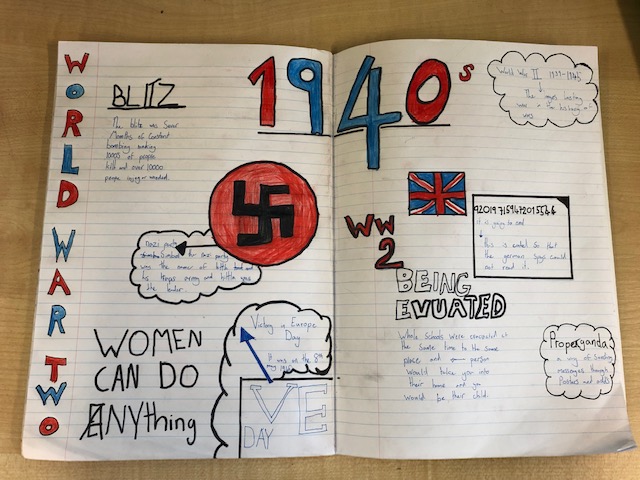 WORLD WAR TWO
BLITZ
The blitz was Seven
Months of constant
bombing
1000s of people
kill and over 10000
people
1940s
World War II 1939-1945
The longest lasting
war in
wars.
Nazi party
Symbol for nazi party
was the
his troops army and
the leader.
WW
2
9201971594720155
it is going to end
this is coded so that
the german spys could
not read it.
BEING
EVUATED
Whole Schools were evacuated at
the same time to the same
place and a person
Would take you into
their home and you
would be their child.
WOMEN
CAN DO
ANYthing
Victory in Europe
Day
it was on the 8th
may
VE
DAY
Properganda
a way of sending
messages through
Posters and